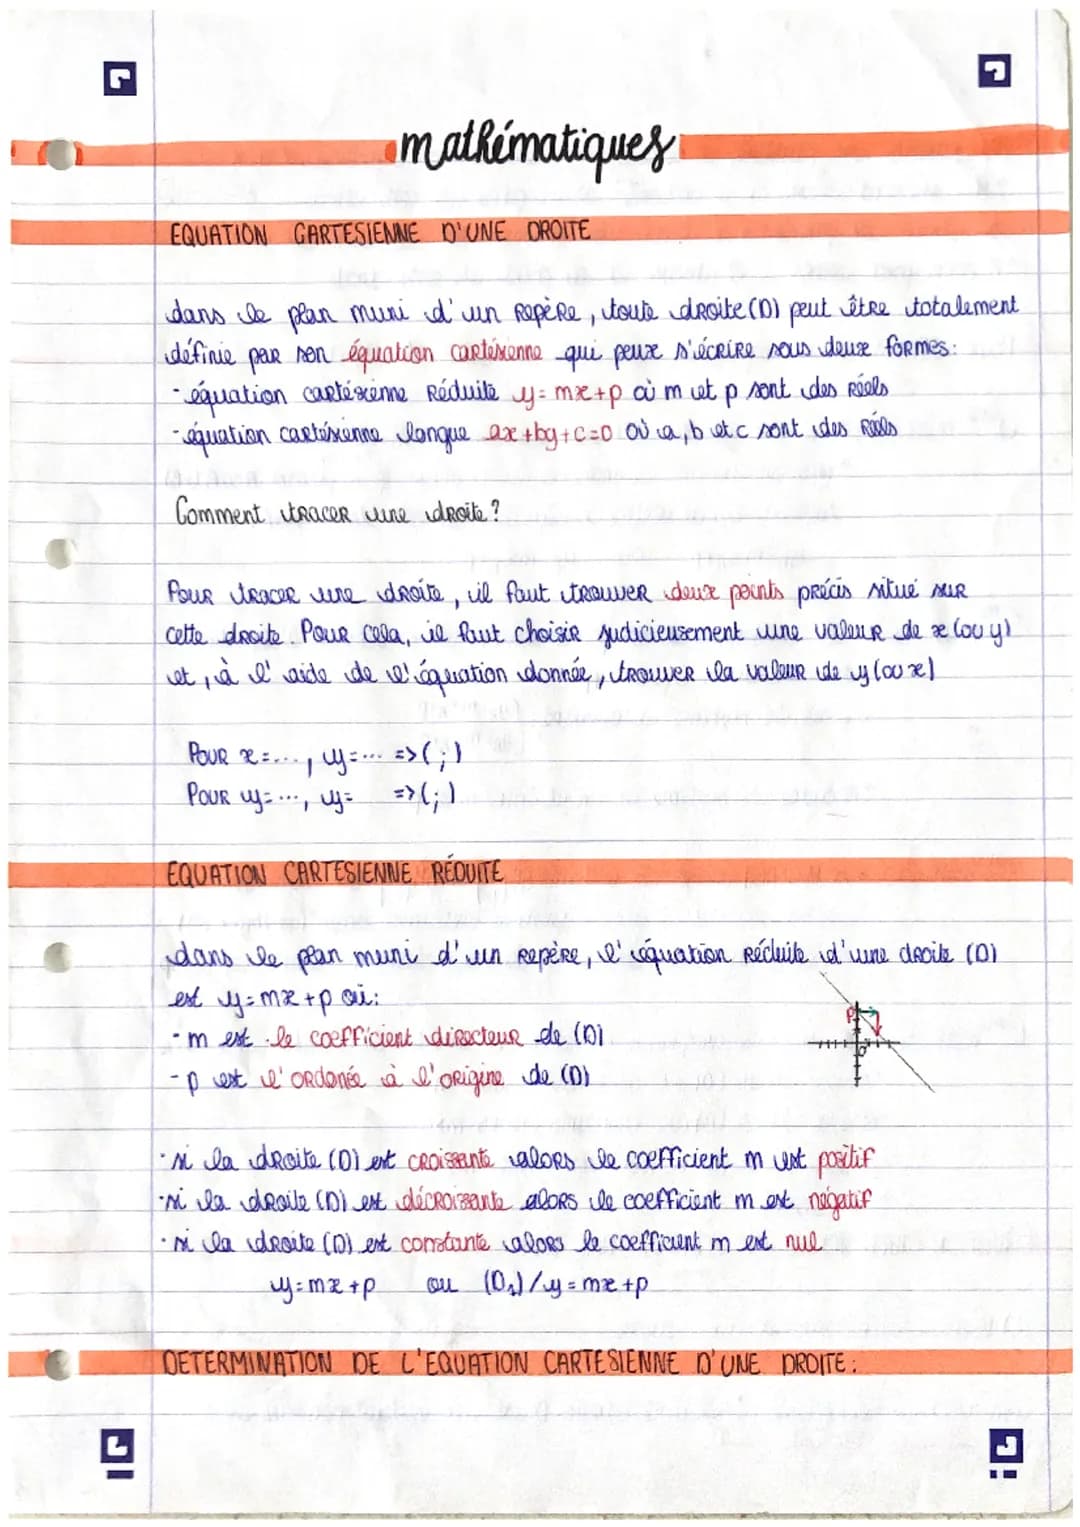 mathématiques
EQUATION CARTESIENNE D'UNE DROITE
dans le plan muni d'un repère, toute droite (D) peut être totalement
définie par son équation cartésienne qui peux s'écrire sous deux formes:
- équation cartésienne réduite y= mx+p où m et p sont des réels
- équation cartésienne longue ax+by+c=0 où a, b et c sont des réels
Comment tracer une droite ?
Pour tracer une droite, il faut trouver deux points précis situé sur
cette droite. Pour cela, il faut choisir judicieusement une valeur de x (ou y)
et, à l'aide de l'équation donnée, trouver la valeur de y (ou x)
Pour x=..., y=... => ( ; )
Pour y=..., y= => ( ; )
EQUATION CARTESIENNE RÉDUITE
dans le plan muni d'un repère, l'équation réduite d'une droite (D)
est y=mx+p où:
- m est le coefficient directeur de (D)
- p est l'ordonée à l'origine de (D)
P
0
· si la droite (D) est croissante alors le coefficient m est positif
· si la droite (D) est décroissante alors le coefficient m est négatif
· si la droite (D) est constante alors le coefficient m est nul
y=mx+p ou (D₁)/y=mx+p
DETERMINATION DE L'EQUATION CARTESIENNE D'UNE DROITE: